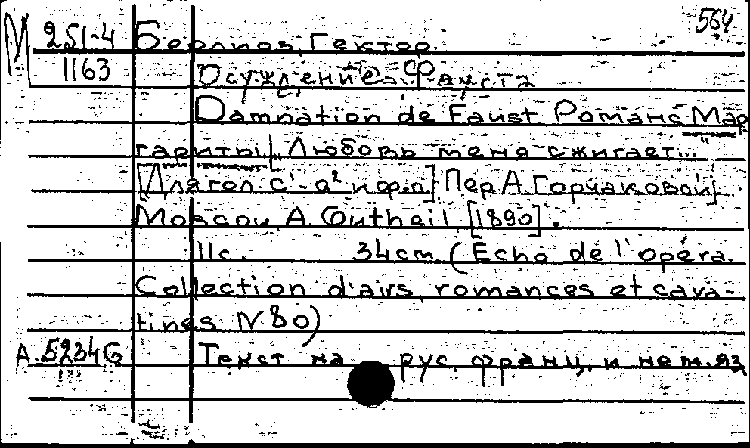 М 251-4 Берлиоз, Гектор. 564
1163 Осуждение Фауста
Damnation de Faust Романс Мар
гариты Любовь меня сжигает...
[Для гол. с¹-а² и ф-п] Пер А. Горчаковой
Moscou A. Gutheil [1890].
11с. 34см. (Echo de l'opéra.
Collection d'airs, romances et cava-
tines N 80)
А. 52346 Текст на рус, франц. и нем. яз